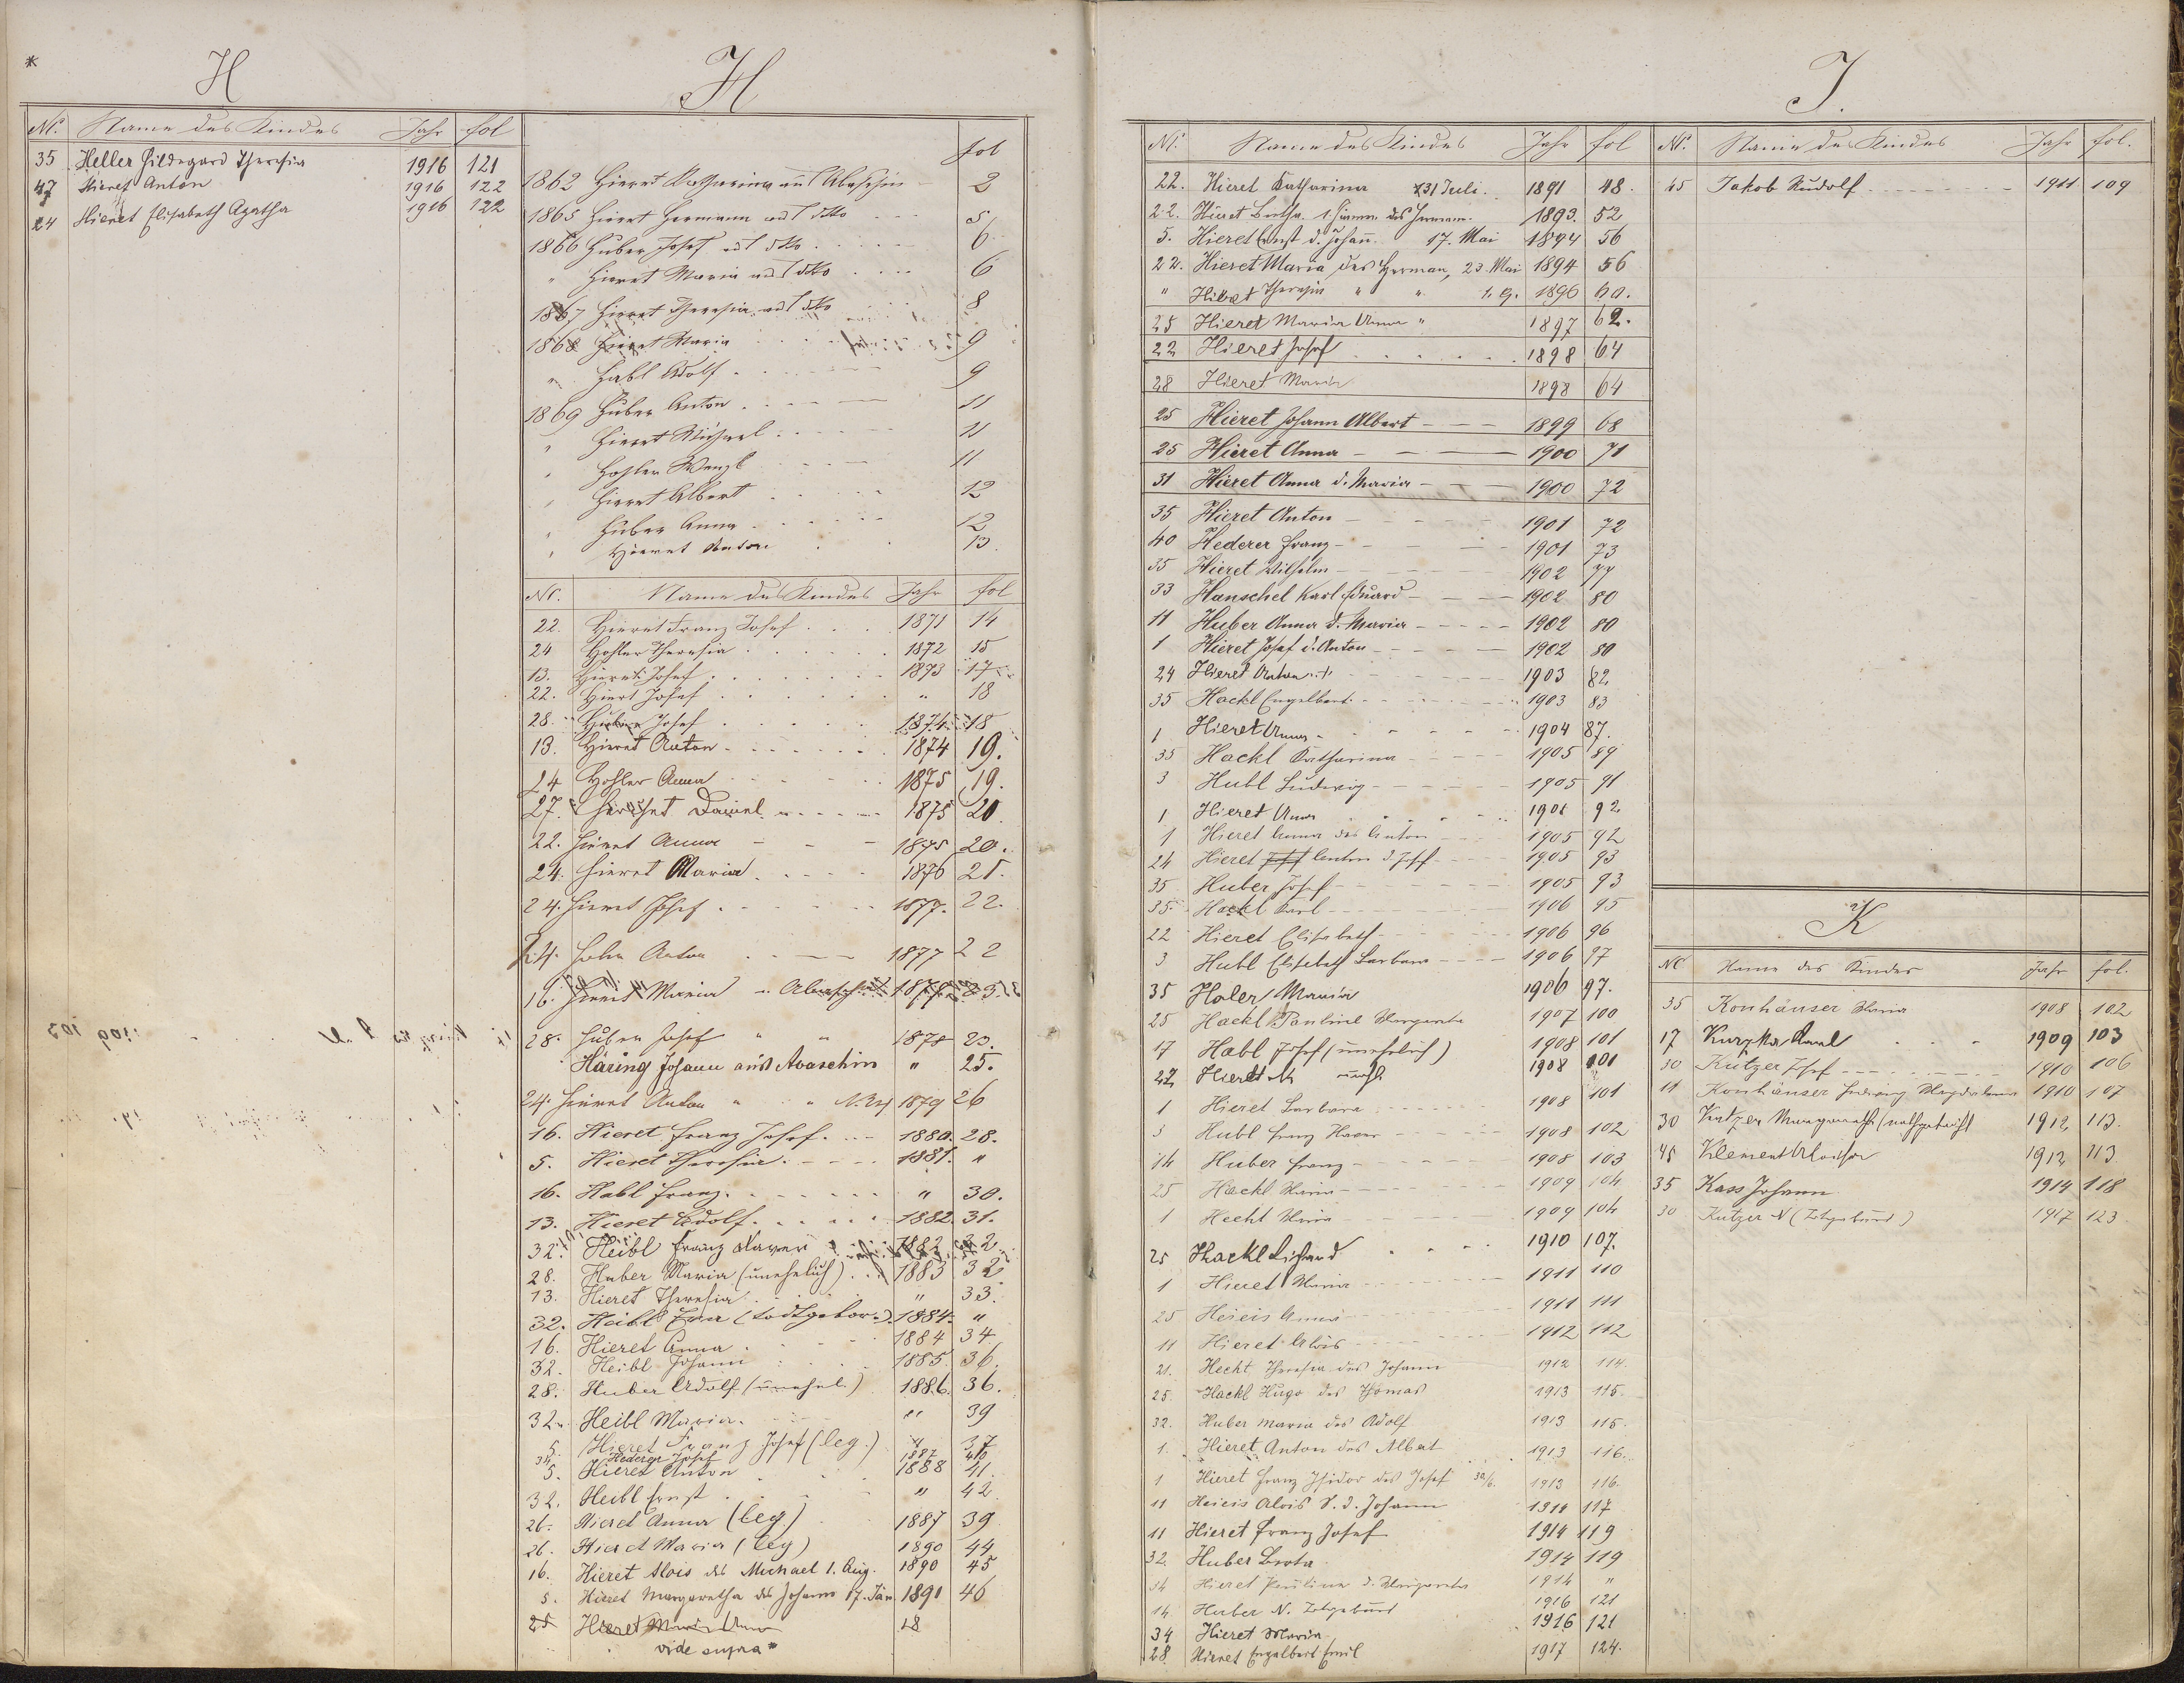 *
H
Nr. Name des Kindes Jahr fol
35 Heller Hildegard Theresia 1916 121
47 Hieret Anton 1916 122
24 Hieret Elisabeth Agatha 1916 122
H
fol
1862 Hieret Katharina aus Abaschin 2
1865 Hieret Hermann aus dtto 5
1866 Huber Josef aus dtto 6
" Hieret Maria aus dtto 6
1867 Hieret Theresia aus dtto 8
1868 Hieret Maria 9
" Habl Adolf 9
1869 Huber Anton 11
" Hieret Michael 11
" Hohler Wenzl 11
" Hieret Albert 12
" Huber Anna 12
" Hieret Anton 13.
Nr. Name des Kindes Jahr fol
22. Hieret Franz Josef 1871 14
24 Hohler Theresia 1872 15
13. Hieret Josef 1873 17
22. Hieret Josef " 18
28. Huber Josef 1874 18
13. Hieret Anton 1874 19.
24 Hohler Anna 1875 19.
27. Daniel 1875 20.
22. Hieret Anna 1875 20.
24. Hieret Maria 1876 21.
24. Hieret Josef 1877. 22.
24. Anton 1877 22
16. Hieret Maria Abaschin
28. Huber Josef " " 1878 23.
Häring Johann aus Abaschin " 25.
24. Hieret Anton " " 1879 26
16. Hieret Franz Josef 1880. 28.
5. Hieret Theresia 1881. "
16. Habl Franz " 30.
13. Hieret Adolf 1882. 31.
32. Heibl Franz Xaver 1882 32
28. Huber Maria (unehelich) 1883 32
13. Hieret Theresia " 33.
32. Heibl (todtgebor.) 1884. "
16. Hieret Anna 1884 34
32. Heibl Johann 1885. 36.
28. Huber Adolf (unehel.) 1886. 36.
32. Heibl Maria. " 39
5. Hieret Franz Josef (leg.) " 37
34. Hederer Josef 1887 40
5. Hieret Anton 1888 41.
32. Heibl Ernst " 42
26. Hieret Anna (leg) 1887 39
26. Hieret Maria (leg) 1890 44
16. Hieret Alois des Michael 1. Aug. 1890 45
5. Hieret Margaretha des Johann 17. Jän. 1891 46
25 Hieret Maria Anna 18
vide supra *
Nr. Name des Kindes Jahr fol
22. Hieret Katharina *31 Juli. 1891 48.
22. Hieret Bertha 1893. 52
5. Hieret Ernst d. Johann. 17. Mai 1894 56
22. Hieret Maria des Herman, 23. Mai 1894 56
" Hieret Theresia " " 1896 60.
25 Hieret Maria Anna " 1897 62.
22 Hieret Josef 1898 64
28 Hieret Maria 1898 64
25 Hieret Johann Albert 1899 68
25 Hieret Anna 1900 71
31 Hieret Anna d. Maria 1900 72
35 Hieret Anton 1901 72
40 Hederer Franz 1901 73
35 Hieret Wilhelm 1902 77
33 Hanschel Karl Eduard 1902 80
11 Huber Anna d. Maria 1902 80
1 Hieret Josef d. Anton 1902 80
24 Hieret Anton 1903 82
35 Hackl Engelbert 1903 83
1 Hieret Anna 1904 87.
35 Hackl Katharina 1905 89
3 Hubl Ludwig 1905 91
1 Hieret Anna 92
1 Hieret Anna des Anton 1905 92
24 Hieret Josef Anton d. Josef 1905 93
35 Huber Josef 1905 93
35 Hackl Karl 1906 95
22 Hieret Elisabeth 1906 96
3 Hubl Elisabeth Barbara 1906 97
35 Holer Maria 1906 97.
25 Hackl Pauline Margareta 1907 100
17 Habl Josef (unehelich) 1908 101
27 Hieret 1908 101
1 Hieret Barbara 1908 101
3 Hubl Franz Xaver 1908 102
14 Huber Franz 1908 103
25 Hackl Maria 1909 104
1 Hecht Maria 1909 104
25 Hackl Richard 1910 107.
1 Hieret Maria 1911 110
25 Heieis Anna 1911 111
11 Hieret Alois 1912 112
21. Hecht Theresia des Johann 1912 114.
25. Hackl Hugo des Thomas 1913 115.
32. Huber Maria des Adolf 1913 115.
1. Hieret Anton des Albert 1913 116.
1 Hieret Franz Isidor des Josef 30/6. 1913 116.
11 Heieis Alois S. d. Johann 1914 117
11 Hieret Franz Josef 1914 119
32. Huber Berta 1914 119
34 Hieret Paulina d. Margareta 1914 "
14 Huber N. Totgeburt 1916 121
34 Hieret Maria 1916 121
28. Hieret Engelbert Emil 1917 124.
J.
Nr. Name des Kindes Jahr fol.
45 Jakob Rudolf 1911 109
K
Nr Name des Kindes Jahr fol.
35 Konhäuser Maria 1908 102
17 Kurzka Karl 1909 103
30 Kutzer Josef 1910 106
11 Konhäuser Hedwig Magdalena 1910 107
30 Kutzer Margareth (nothgetauft) 1912 113.
45 Klement Aloisia 1912 113
35 Kass Johann 1914 118
30 Kutzer N (Totgeburt) 1917 123